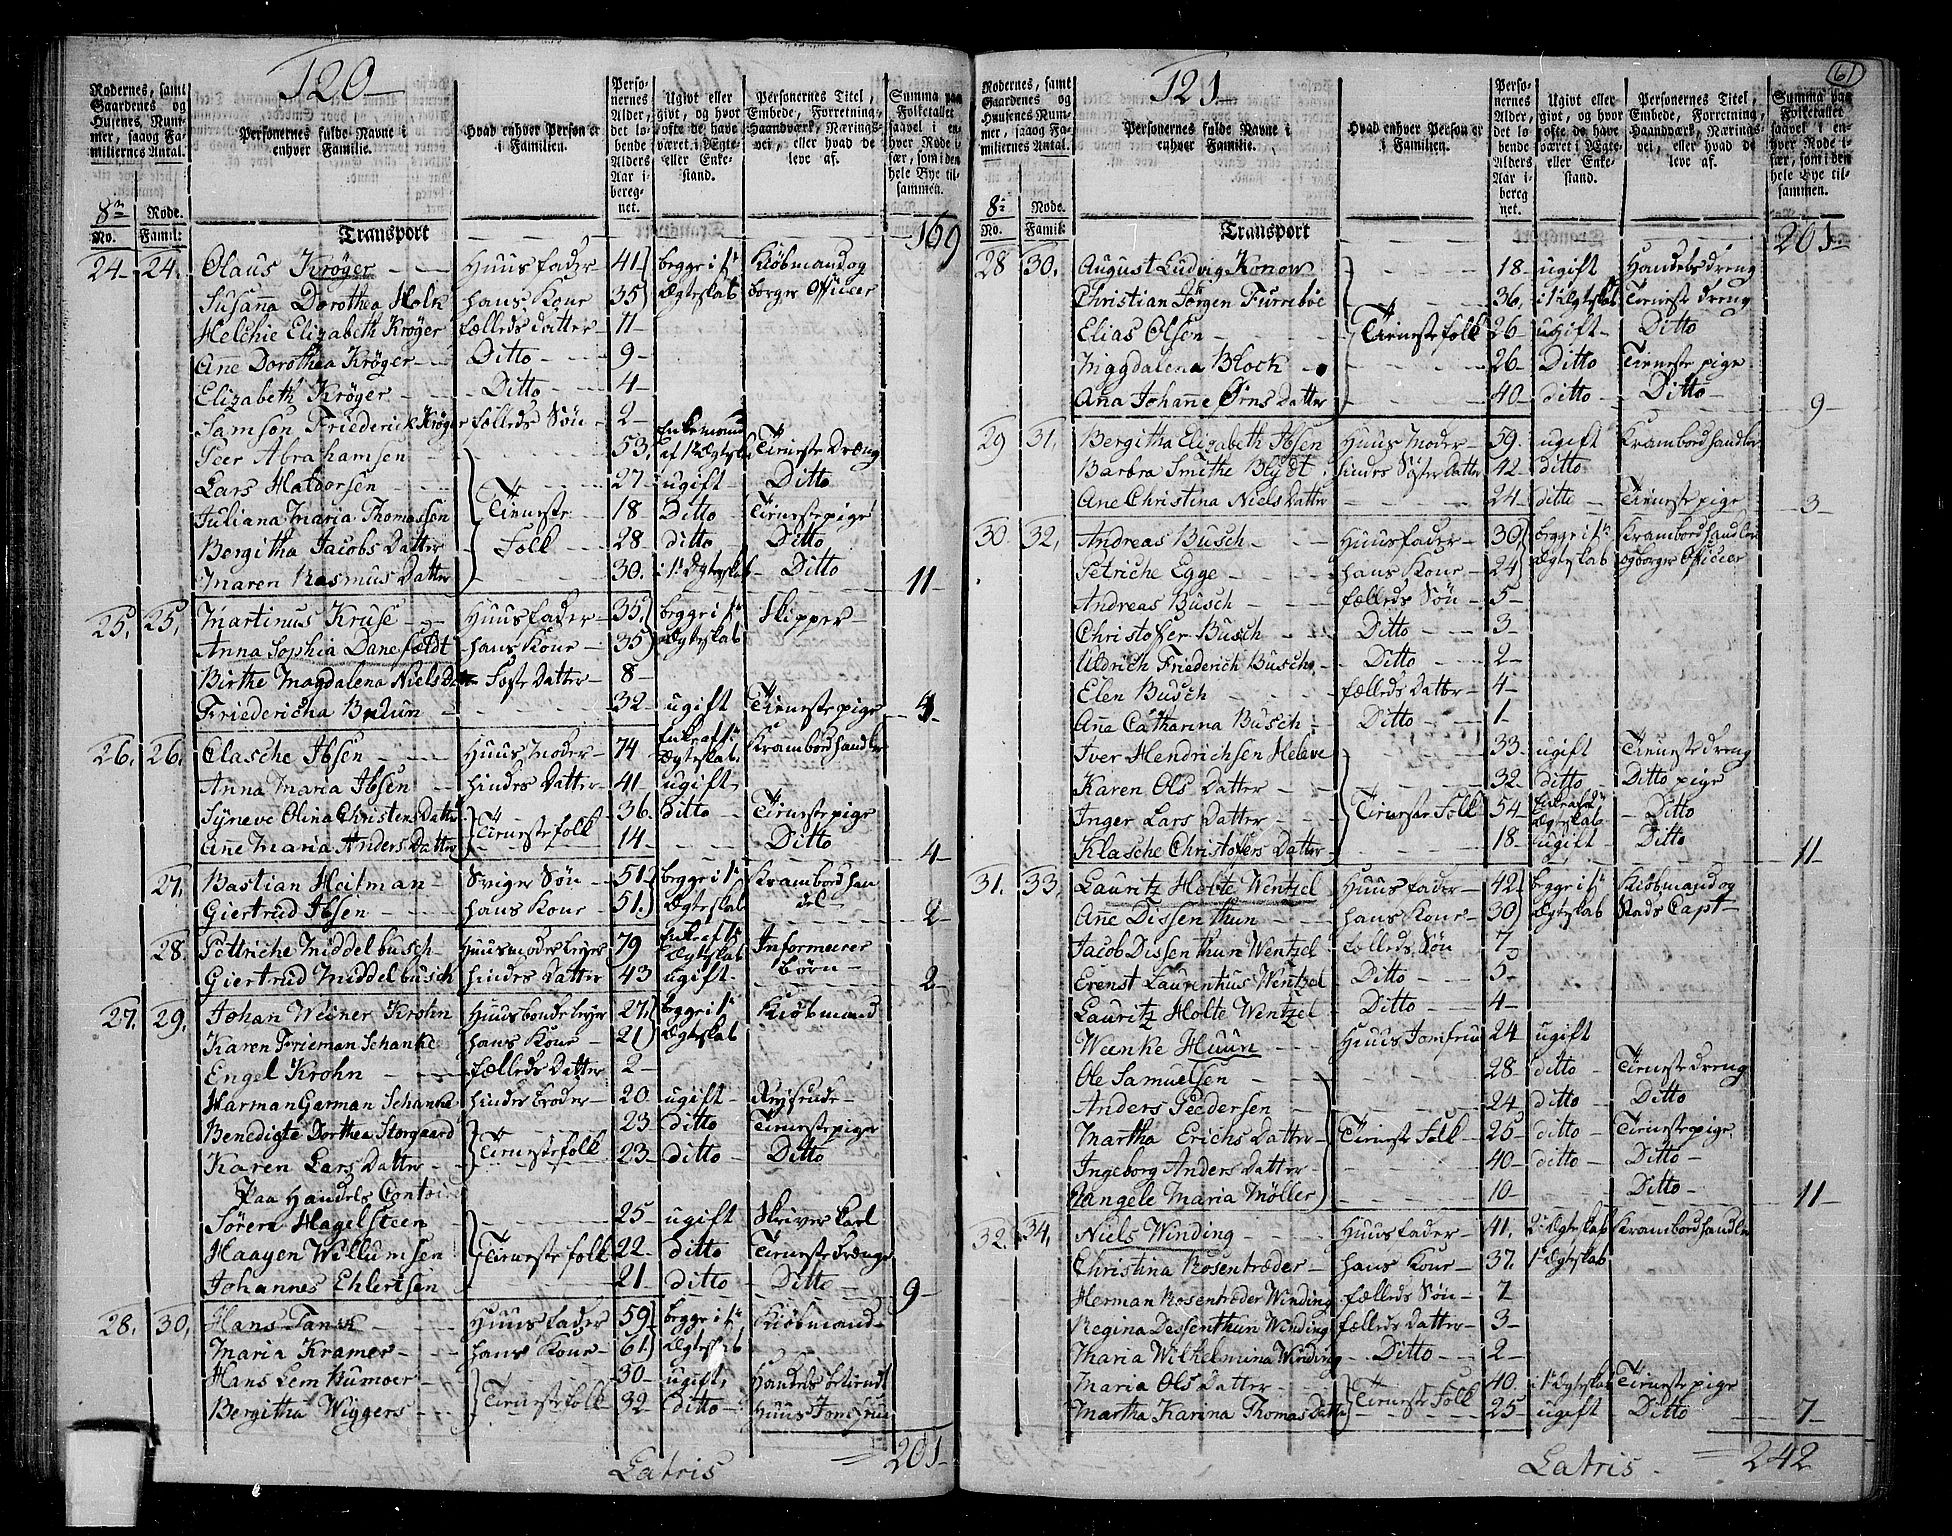 120
Rodernes, samt
Gaardenes og
Husenes, Num-
mer, saaog Fa-
miliernes Antal.
Personernes fulde Navne i
enhver Familie.
Hvad enhver Person er
i Familien.
Perso-
nernes
Alder,
det lø-
bende
Alders
Aar i-
bereg-
net.
Ugivt eller
givt, og hvor
ofte de have
været i Ægte-
eller Enke-
stand.
Personernes Titel,
Embede, Forretning,
Haandværk, Nærings-
vei, eller hvad de
leve af.
Summa paa
Folketallet
saavel i en-
hver Rode i-
sær, som i den
hele Bye til-
sammen.
8de Rode.
No. Famil:
Transport 169
24. 24. Claus Krøger Huusfader 41 begge i 1te Kiøbmand og
Susanna Dorothea Holk hans Kone 35 Ægteskab borger Officer
Melchie Elizabeth Krøger fælleds datter 11
Ane Dorothea Krøger Ditto 9
Elizabeth Krøger Ditto 4
Samson Friederich Krøger fælleds Søn 2
Peer Abrahamsen 53. Enkemand af 1te Ægtesk Tieneste Dreng
Lars Haldorsen 27 ugift Ditto
Juliana Maria Thomassen Tieneste 18 Ditto Tienestepige
Bergitha Jacobs Datter Folk 28 ditto Ditto
Maren Rasmus Datter 30. i 1te Ægteskab Ditto 11
25. 25. Martinus Kruse Huusfader 35 begge i 1te Skipper
Anna Sophia Danefældt hans Kone 35 Ægteskab
Birthe Magdalena Niels Datter Foste Datter 8
Friedericha Bruun 32 ugift Tienestepige 4
26. 26. Clasche Ibsen Huus Moder 74 Enke af 1te Ægteskab. Krambodhandler
Anna Maria Ibsen hindes Datter 41 ugift
Syneve Olina Christens Datter Tienestefolk 36 ditto Tienestepige
Ane Maria Anders Datter 14 Ditto 4
27. Bastian Heitman Sviger Søn 51 begge i 1te Krambod han
Giertrud Ibsen hans Kone 51. Ægteskab del 2
28. Pettriche Middelbusch Huusmoder leyer 79 Enke af 1te Ægteskab Informerer
Giertrud Middelbusch hindes Datter 43 ugift børn 2
27. 29. Johan Weiner Krohn Huusbonde leyer 27 begge i 1te Kiøbmand
Karen Frieman Schanke hans Kone 21 Ægteskab
Engel Krohn fælleds Datter 2
Harman Garman Schanke hindes broder 20 ugift Reysende
Benedigte Dorthea Storgaard Tienestefolk 23 ditto Tienestepige
Karen Lars Datter 23 ditto Ditto
Paa Handels Contoir
Søren Hagelsteen 25 ugift Skriver karl
Haagen Willumsen Tienestefolk 22 ditto Tieneste drenge
Johannes Ehlertsen 21 ditto Ditto 9
28. 30. Hans Tank Huusfader 59 begge i 1te Kiøbmand
Maria Kramer hans Kone 61 Ægteskab
Hans Lem Kumoer Tienestefolk 30 ugift, Handels betient
Bergitha Wiggers 32 ditto Huus Jomfrue
Latris 201
121
61
Rodernes, samt
Gaardenes og
Husenes Num-
mer, saaog Fa-
miliernes Antal.
Personernes fulde Navne i
enhver Familie.
Hvad enhver Person er
i Familien.
Perso-
nernes
Alder,
det lø-
bende
Alders
Aar i-
bereg-
net.
Ugivt eller
givt, og hvor
ofte de have
været i Ægte-
eller Enke-
stand.
Personernes Titel,
Embede, Forretning,
Haandværk, Nærings-
vei, eller hvad de
leve af.
Summa paa
Folketallet
saavel i en-
hver Rode i-
sær, som i den
hele Bye til-
sammen.
8de Rode.
No. Famil:
Transport 201
28 30. August Ludvig Konow 18 ugift Handels dreng
Christian Jørgen Furreboe 36. i 1te Ægteskab Tieneste dreng
Elias Olsen Tienestefolk 26 ugift Ditto
Miggdalena Block 26 Ditto Tieneste pige
Ana Johane Ørns Datter 40 ditto Ditto 9
29 31. Bergitha Elizabeth Ibsen Huus Moder 59. ugift Krambodhandler
Barbra Smithe Blydt hindes Søster Datter 42 ditto
Ane Christina Niels Datter 24 ditto Tieneste pige 3
30 32. Andreas Busch Huusfader 30 begge i 1te Krambodhandler
Petriche Egge hans Kone 24 Ægteskab og borger Officeer
Andreas Busch fælleds Søn 5
Christoffer Busch Ditto 3
Uldrich Friederich Busch Ditto 2
Elen Busch fælleds Datter 4
Ane Catharina Busch Ditto 1
Iver Hendrichsen Heleve 33 ugift Tieneste dreng
Karen Ols Datter 32 ditto Ditto pige
Inger Lars Datter Tieneste Folk 54 Enke af 2 Ægteskab Ditto
Klasche Christofers Datter 18 ugift Ditto 11
31. 33. Lauritz Holte Wentzel Huusfader 42 begge i 1te Kiøbmand og
Ane Dissenthun hans Kone 30 Ægteskab Stads Capt
Jacob Dissenthun Wentzel fælleds Søn 7
Erenst Laurenthus Wentzel Ditto 5
Lauritz Holte Wentzel Ditto 4
Wenke Huun Huus Jomfrue 24 ugift
Ole Samuelsen 28 ditto Tieneste dreng
Anders Pedersen 24 ditto Ditto
Martha Erichs Datter Tieneste Folk 25 ditto Tienestepige
Ingeborg Anders Datter 40 ditto Ditto
Angele Maria Møller 10 Ditto 11
32. 34. Niels Winding Huusfader 41. 2de Ægteskab Krambodhandler
Christina Rosentræder hans Kone 37. 1te Ægteskab
Herman Rosentræder Winding fælleds Søn 7
Regina Dessenthun Winding fælleds Datter 3
Maria Wilhelmina Winding Ditto 2
Maria Ols Datter Tieneste Folk 40 i 1te Ægteskab Tienestepige
Martha Karina Thomas Datter 25 ugift Ditto 7
Latris 242